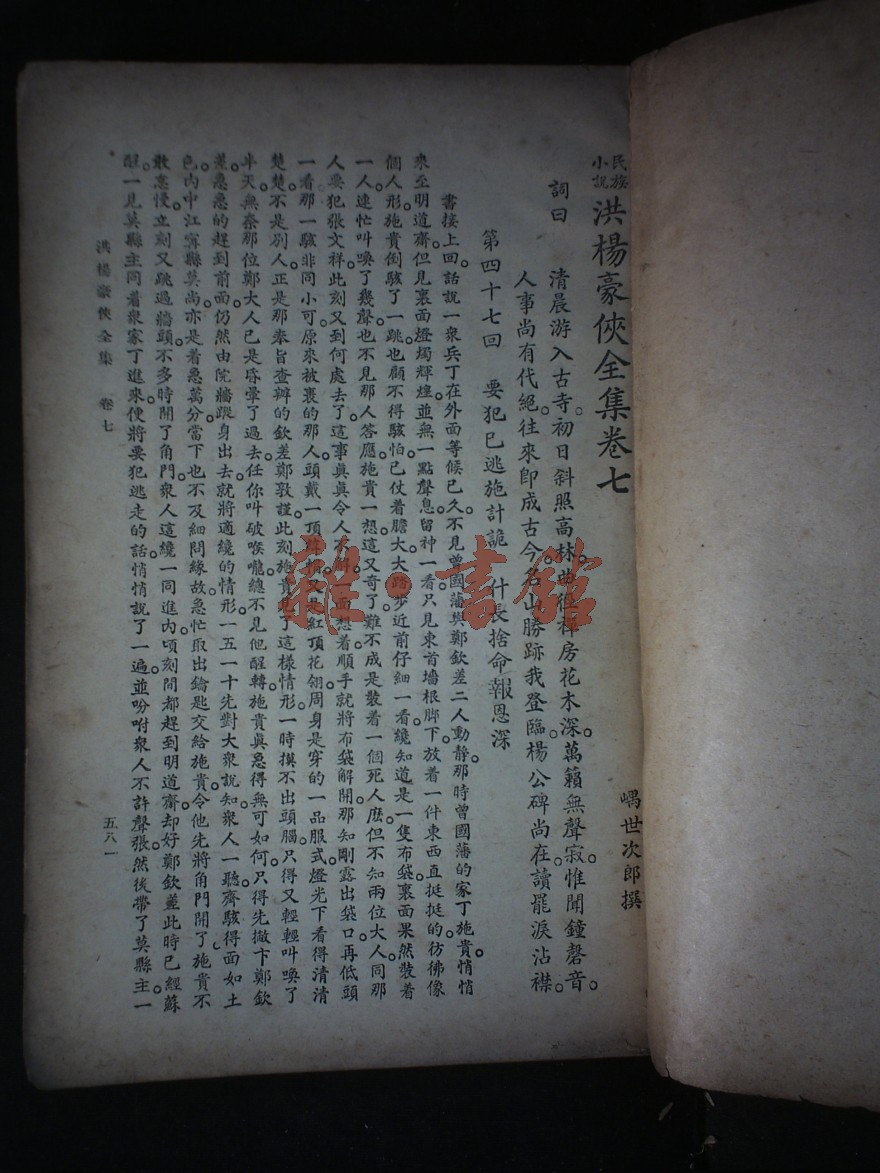 民族小說 洪楊豪俠全集卷七
嵎世次郎撰
詞曰 清晨游入古寺。初日斜照高林。曲徑禪房花木深。萬籟無聲寂。惟聞鐘磬音。
人事尚有代絕。往來即成古今。名山勝跡我登臨。楊公碑尚在。讀罷淚沾襟。
第四十七回 要犯已逃施計詭 什長捨命報恩深
書接上回。話說一衆兵丁在外面等候已久。不見曾國藩與鄭欽差二人動靜。那時曾國藩的家丁施貴。悄悄
來至明道齋。但見裏面燈燭輝煌。並無一點聲息。留神一看。只見東首墻根脚下。放着一件東西。直挺挺的彷彿像
個人形。施貴倒駭了一跳。也顧不得駭怕。已仗着膽大。大踏步近前仔細一看。纔知道是一隻布袋。裏面果然裝着
一人。連忙叫喚了幾聲。也不見那人答應。施貴一想。這又奇了。難不成是裝着一個死人麽。但不知兩位大人同那
人要犯張文祥。此刻又到何處去了。這事眞眞令人不解。一面想着。順手就將布袋解開。那知剛露出袋口。再低頭
一看。那一駭非同小可。原來被裹的那人。頭戴一頂緯帽。又是紅頂花翎。周身是穿的一品服式。燈光下看得清清
楚楚。不是別人。正是那奉旨查辦的欽差鄭敦謹。此刻施貴見了這樣情形。一時摸不出頭腦。只得又輕輕叫喚了
半天。無奈那位鄭大人已是昏暈了過去。任你叫破喉嚨。總不見他醒轉。施貴眞急得無可如何。只得先撇卞鄭欽
差。急急的趕到前面。仍然由院牆躥身出去。就將適纔的情形。一五一十先對大衆說知。衆人一聽。齊駭得面如土
色。內中江甯縣莫尚。亦是着急萬分。當下也不及細問緣故。急忙取出鑰匙。交給施貴。令他先將角門開了。施貴不
敢怠慢。立刻又跳過牆頭。不多時開了角門。衆人這纔一同進內。頃刻間都趕到明道齋。却好鄭欽差此時已經蘇
醒。一見莫縣主同着衆家丁進來。便將要犯逃走的話。悄悄說了一遍。並吩咐衆人不許聲張。然後帶了莫縣主。一
洪楊豪俠全集 卷七
五八一
雜·書館